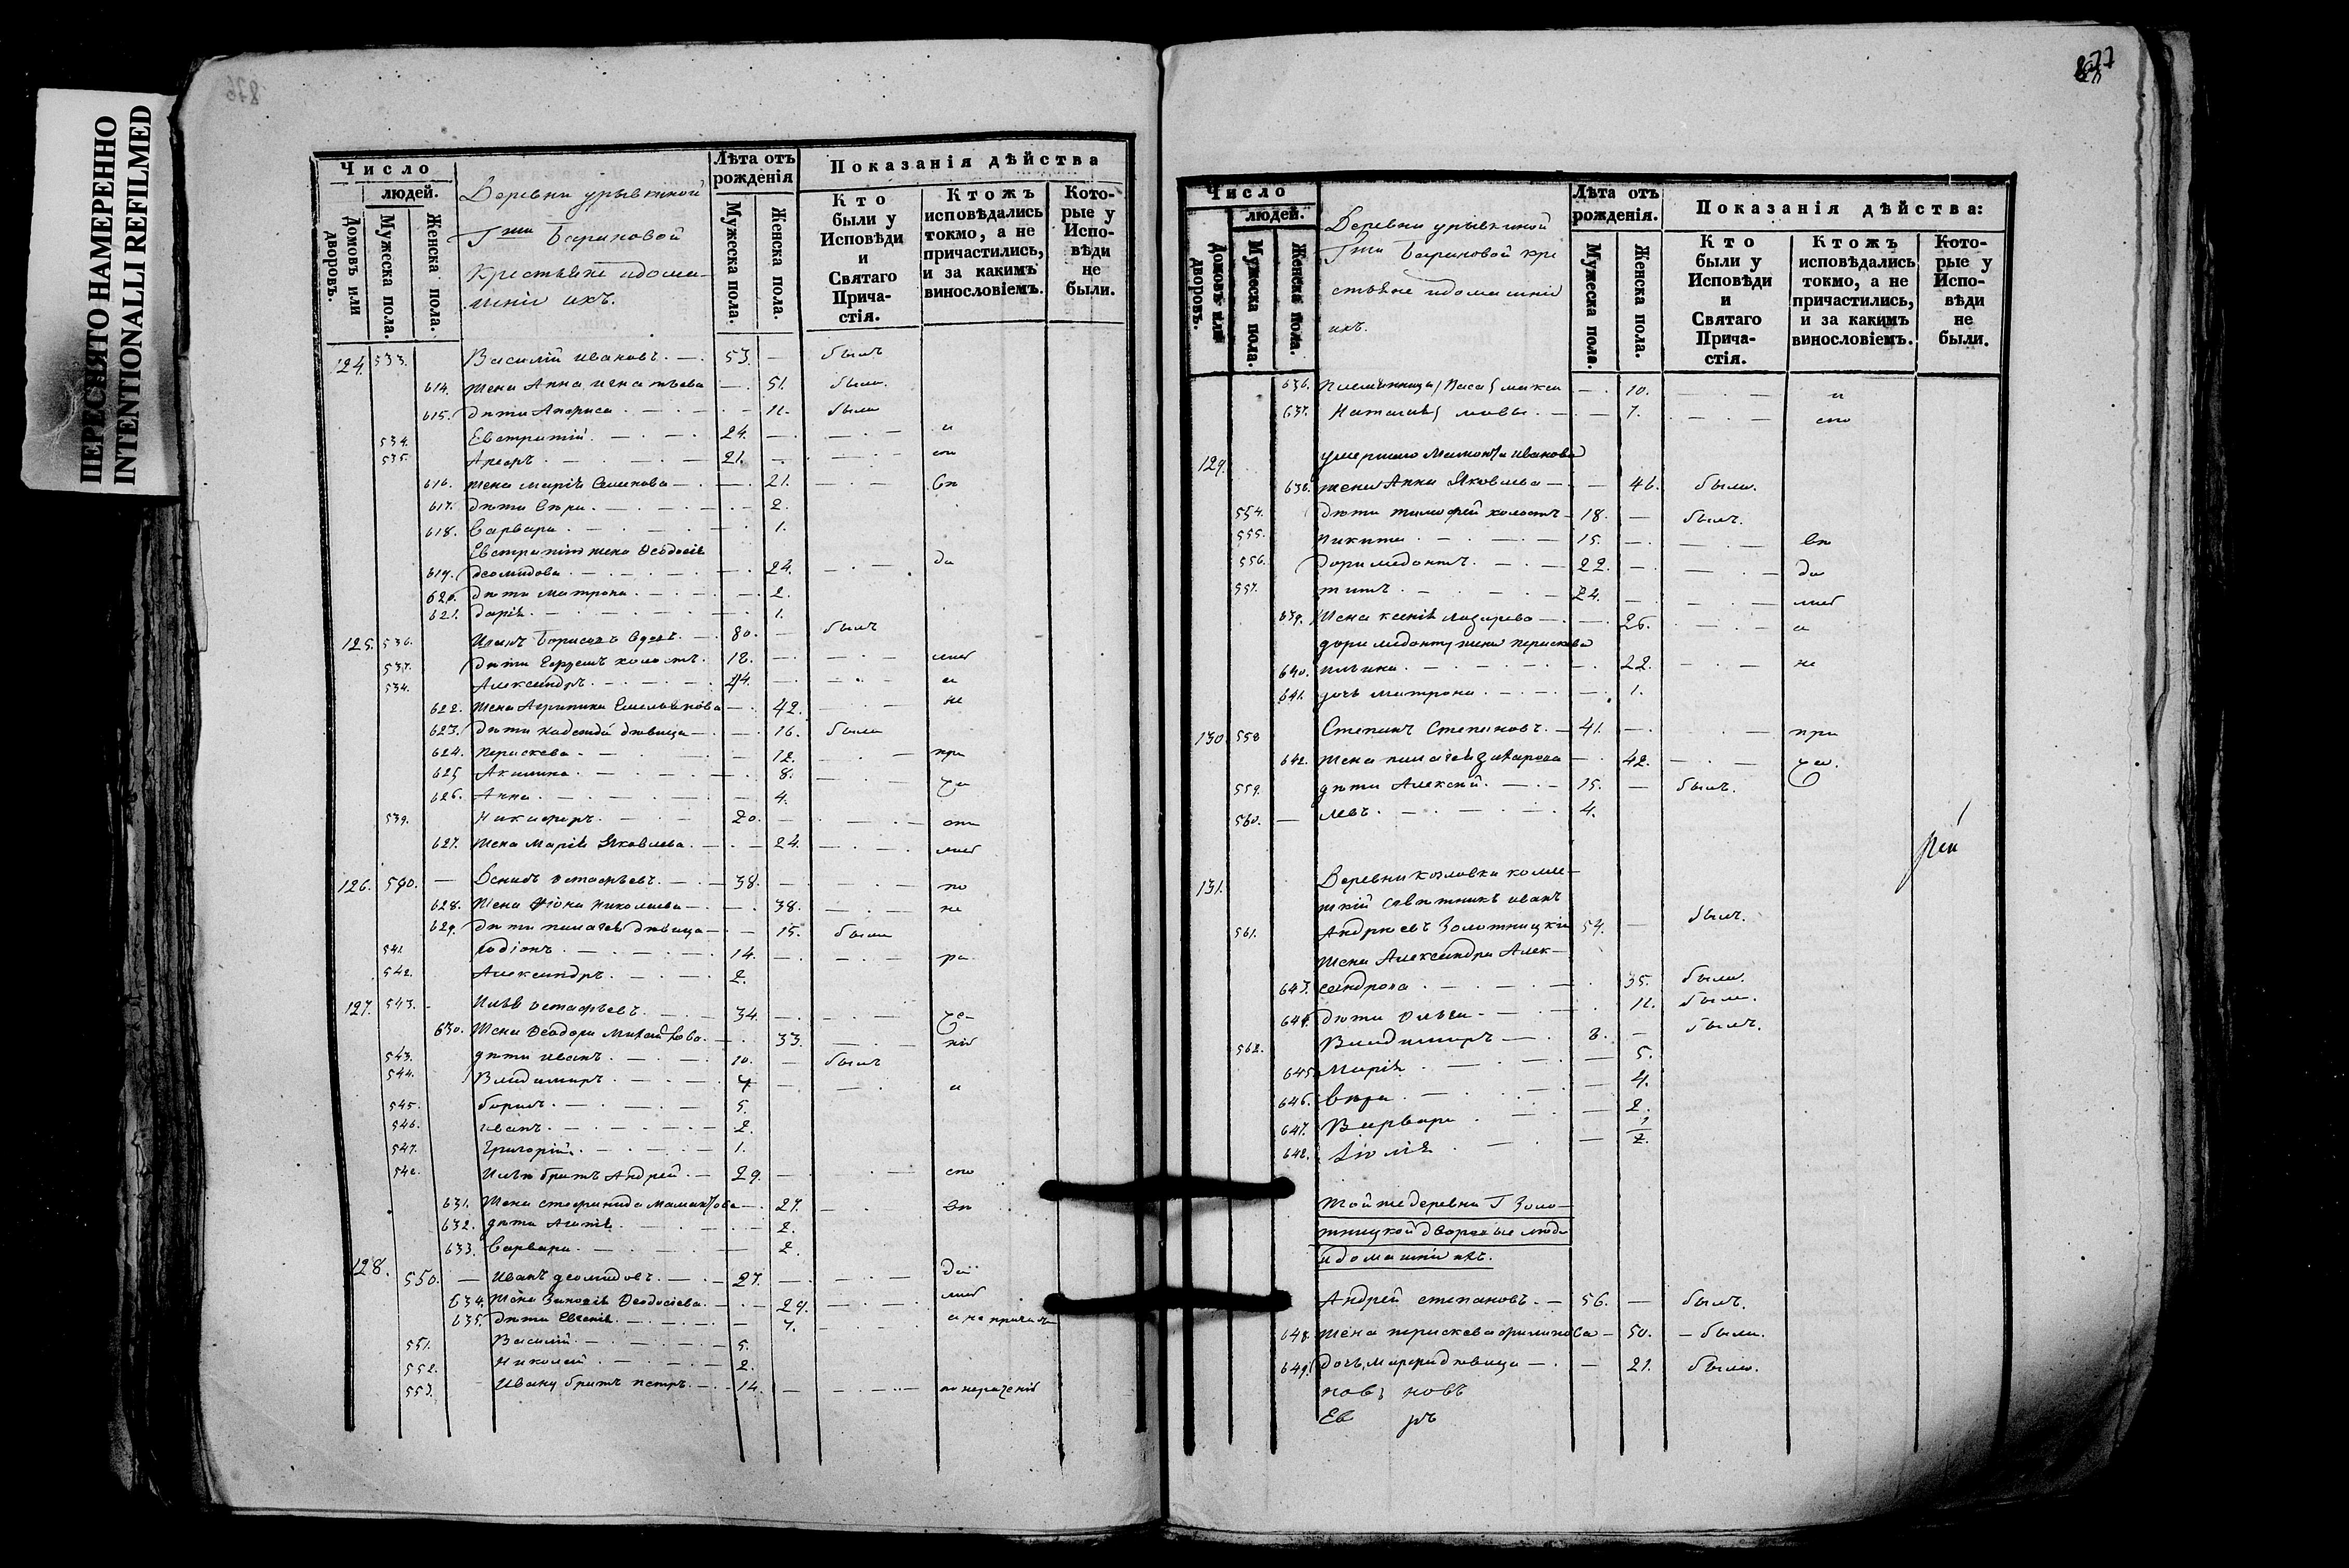 ПЕРЕСНЯТО НАМЕРЕННО
INTENTIONALLI REFILMED
876
Число
людей.
Домовъ или дворовъ.
Мужеска пола.
Женска пола.
Деревни урывкиной
Гжи Бариновой
Крестьяне и дома-
шніи ихъ.
Лѣта отъ рожденія
Мужеска пола.
Женска пола.
Показанія дѣйства
Кто были у Исповѣди и Святаго Прича-стія.
Ктожъ исповѣдались токмо, а не причастились, и за какимъ винословіемъ.
Кото-рые у Испо-вѣди не были.
124. 533. Василій Ивановъ. 53. былъ
614. Жена Анна Игнатьева 51. была.
615. дѣти Анфиса 11. была
534. Евстратій. 24. и
535. 21.
616. Жена Марія Семенова 21. сп
617. дѣти Вѣра. 2.
618. Варвара. 1.
Евстратія жена Ѳеодосія
619. Деомидова. 24. да
620. дѣти Матрона. 2.
621. Дарія. 1.
125. 536. Иванъ Борисовъ вдовъ. 80. былъ
537. дѣти холостъ. 18. лис
534. Александръ. 44. а
622. Жена Агрипина Емельянова 42. не
623. дѣти Надежда дѣвица 16. была
624. Параскева. 12. при
625 Акилина. 8. ча
626. Анна. 4.
539. Никифоръ. 20. сти
627. Жена Марія Яковлева. 24. лис
126. 540. Денисъ Остафьевъ. 38. по
628. Жена Николаева 38. не
629. дѣти Пелагія дѣвица 15. была
541. Родіонъ. 14. ра
542. Александръ. 2.
127. 543. Илья Остафьевъ. 34. че
630. Жена Ѳеодора Михайлова. 33. ніе
543. дѣти Иванъ. 10. былъ
544. Владимиръ. 7 и
545. Борисъ. 5.
546. Иванъ. 2.
547. Григорій. 1.
548. Ильи братъ Андрей. 29. спо
631. Жена Стефанида Мамонтова 27. вѣ
632. дѣти Агапія. 2.
633. Варвара. 2.
128. 550. Иванъ Деомидовъ. 27. да
634. Жена Зиновія Ѳеодосіева. 29. лис
635. дѣти Евгенія. 7. а не причаст
551. Василій. 5.
552. Николай. 2.
553. Ивану братъ Петръ. 14. по нераченію
877
Число
людей.
Домовъ или дворовъ.
Мужеска пола.
Женска пола.
Деревни урывкиной
Гжи Бариновой кре
стьяне и домашніи
ихъ.
Лѣта отъ рожденія.
Мужеска пола.
Женска пола.
Показанія дѣйства:
Кто были у Исповѣди и Святаго Прича-стія.
Ктожъ исповѣдались токмо, а не причастились, и за какимъ винословіемъ.
Кото-рые у Испо-вѣди не были.
636. Племянница Васа макси 10. и
637. Наталія мовы. 7. спо
129. умершаго Мамонта Иванова
636. жена Анна Яковлева 46. была.
554. дѣти Тимофей холостъ 18. былъ.
555. Никита 15. вѣ
556. Доримедонтъ. 22. да
557. Титъ. 24. лис
639. Жена Ксенія Лазарева 26. а
Доримедонту жена Параскева
640. Ильина. 22. не
641. дочь Матрона. 1.
130 558 Степанъ Степановъ. 41. при
642. Жена Пелагія Захарова 42. ча.
559. дѣти Алексѣй. 15. былъ.
560. Левъ. 4.
131. Деревни козловки колле-
жскій совѣтникъ Иванъ
561. Андреевъ Золотницкій 54. былъ.
Жена Александра Алек-
643. сандрова 35. была.
644. дѣти Ольга 11. была.
562. Владимиръ 8. былъ.
645 Марія 5.
646. Вѣра. 4.
647. Варвара 2.
648. Юлія 1/2.
Той же деревни Г Золо-
тницкой дворовые люди
и домашніи ихъ.
Андрей Степановъ. 56. былъ.
648. Жена Параскева Филипова 50. была.
649. дочь Марфа дѣвица 21. была.
нов новъ
Ев ръ